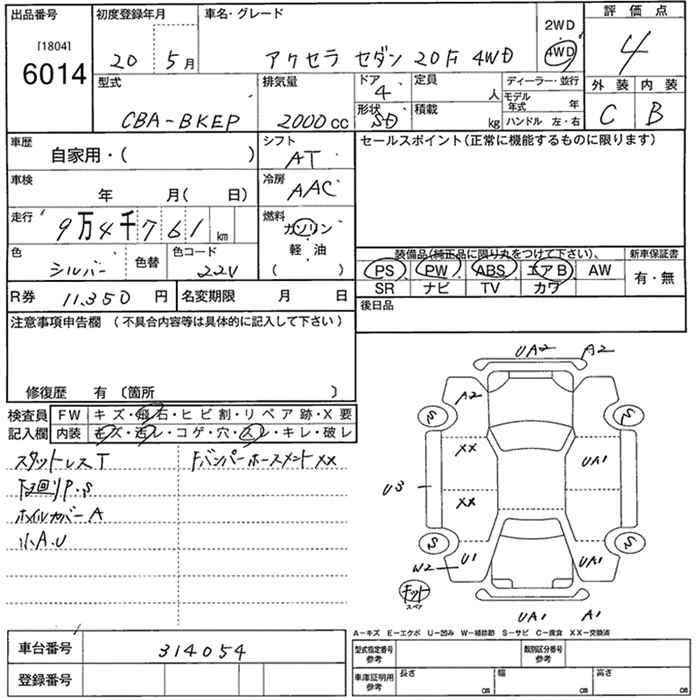 出品番号
[1804]
6014
初度登録年月
20 5月
車名・グレード
アクセラ セダン 20F 4WD
2WD
4WD
評価点
4
外装 内装
C B
型式
CBA-BKEP
排気量
2000cc
ドア
4
形状
SD
定員
人
積載
kg
ディーラー・並行
モデル年式 年
ハンドル 左・右
車歴
自家用・( )
シフト
AT
セールスポイント(正常に機能するものに限ります)
車検
年 月( 日)
冷房
AAC
走行
9万4千761km
燃料
ガソリン
軽・油
( ・ )
色
シルバー
色替
色コード
22V
装備品(純正品に限り丸をつけて下さい)、
新車保証書
PS PW ABS エアB AW
有・無
SR ナビ TV カワ
R券 11,350 円
名変期限 月 日
後日品
注意事項申告欄 (不具合内容等は具体的に記入して下さい)
修復歴 有 〔箇所 〕
検査員
記入欄
FW キズ・飛石・ヒビ割・リペア跡・X要
内装 キズ・汚レ・コゲ・穴・スレ・キレ・破レ
スタットレスT
Fバンパーホースメント××
下回りP.S
ホイルカバーA
小A.U
UA2 A2
A2
S S
XX
UA1
U3
XX
S S
U1
W2
UA1
キット
スペア
UA1 A1
A-キズ E-エクボ U-凹み W-補修跡 S-サビ C-腐食 XX-交換済
車台番号
314054
登録番号
型式指定番号
参考
類別区分番号
参考
車庫証明用
参考
長さ cm
幅 cm
高さ cm